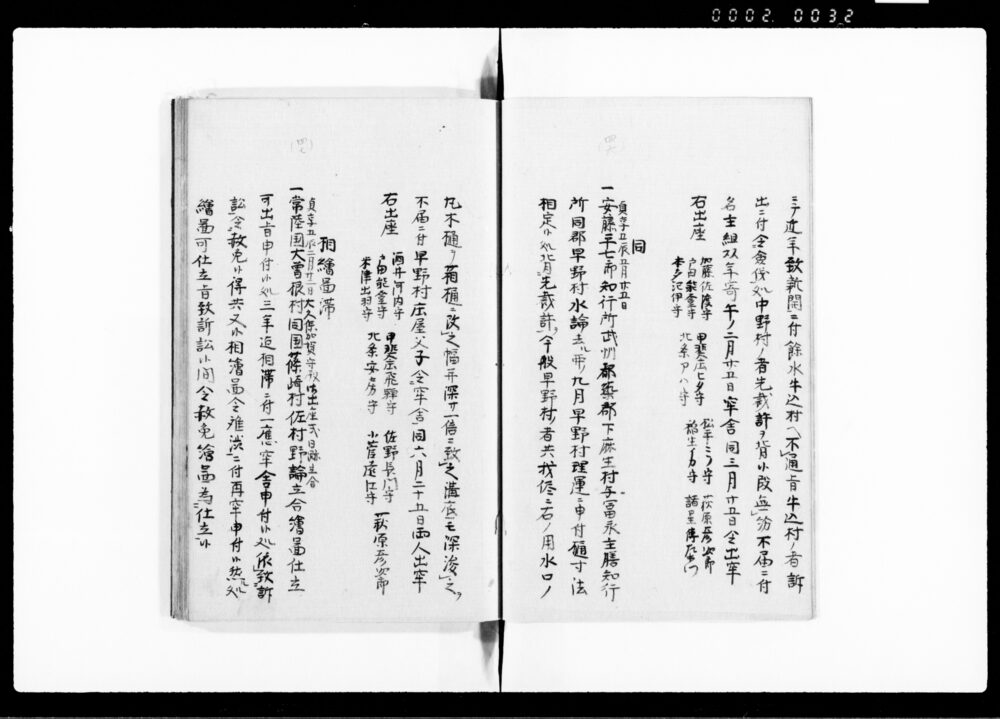 0002.0032
(四六)
三テ近年致新開ニ付餘水牛込村ヘ不通旨牛込村ノ者訴
出ニ付令僉儀処中野村ノ者先裁許ヲ背候段無紛不届ニ付
名主組頭年寄午ノ二月廿五日牢舎同三月廿五日令出牢
右出座
加藤佐渡守 甲斐庄ヒタ守 松平ミノ守 萩原彦次郎
戸田能登守 北条アハ守 稲生イカ守 諸星傳左衛門
本多紀伊守
同
貞享五辰五月廿五日
一安藤三七郎知行所武州都築郡下麻生村与冨永主膳知行
所同郡早野村水論去ル卯九月早野村理運ニ申付樋寸法
相定候処背先裁許今般早野村ノ者共我侭ニ右ノ用水口ノ
(四七)
丸木樋ヲ箱樋ニ改之幅并深サ一倍ニ致之溝底モ深浚之
不届ニ付早野村庄屋父子令牢舎同六月二十五日両人出牢
右出座
酒井河内守 甲斐庄飛騨守 佐野長門守 萩原彦次郎
戸田能登守 北条安房守 小菅遠江守
米津出羽守
相繪圖滞
貞享五辰二月廿二日大久保加賀守殿御出座式日寄合
一常陸国大曽根村同国篠崎村佐村野論立合繪圖仕立
可出旨申付候処三年迄相滞ニ付一應牢舎申付候処依致訴
訟令赦免候得共又候相繪圖令難渋ニ付再牢申付候然処
繪圖可仕立旨致訴訟候間令赦免繪圖為仕立候